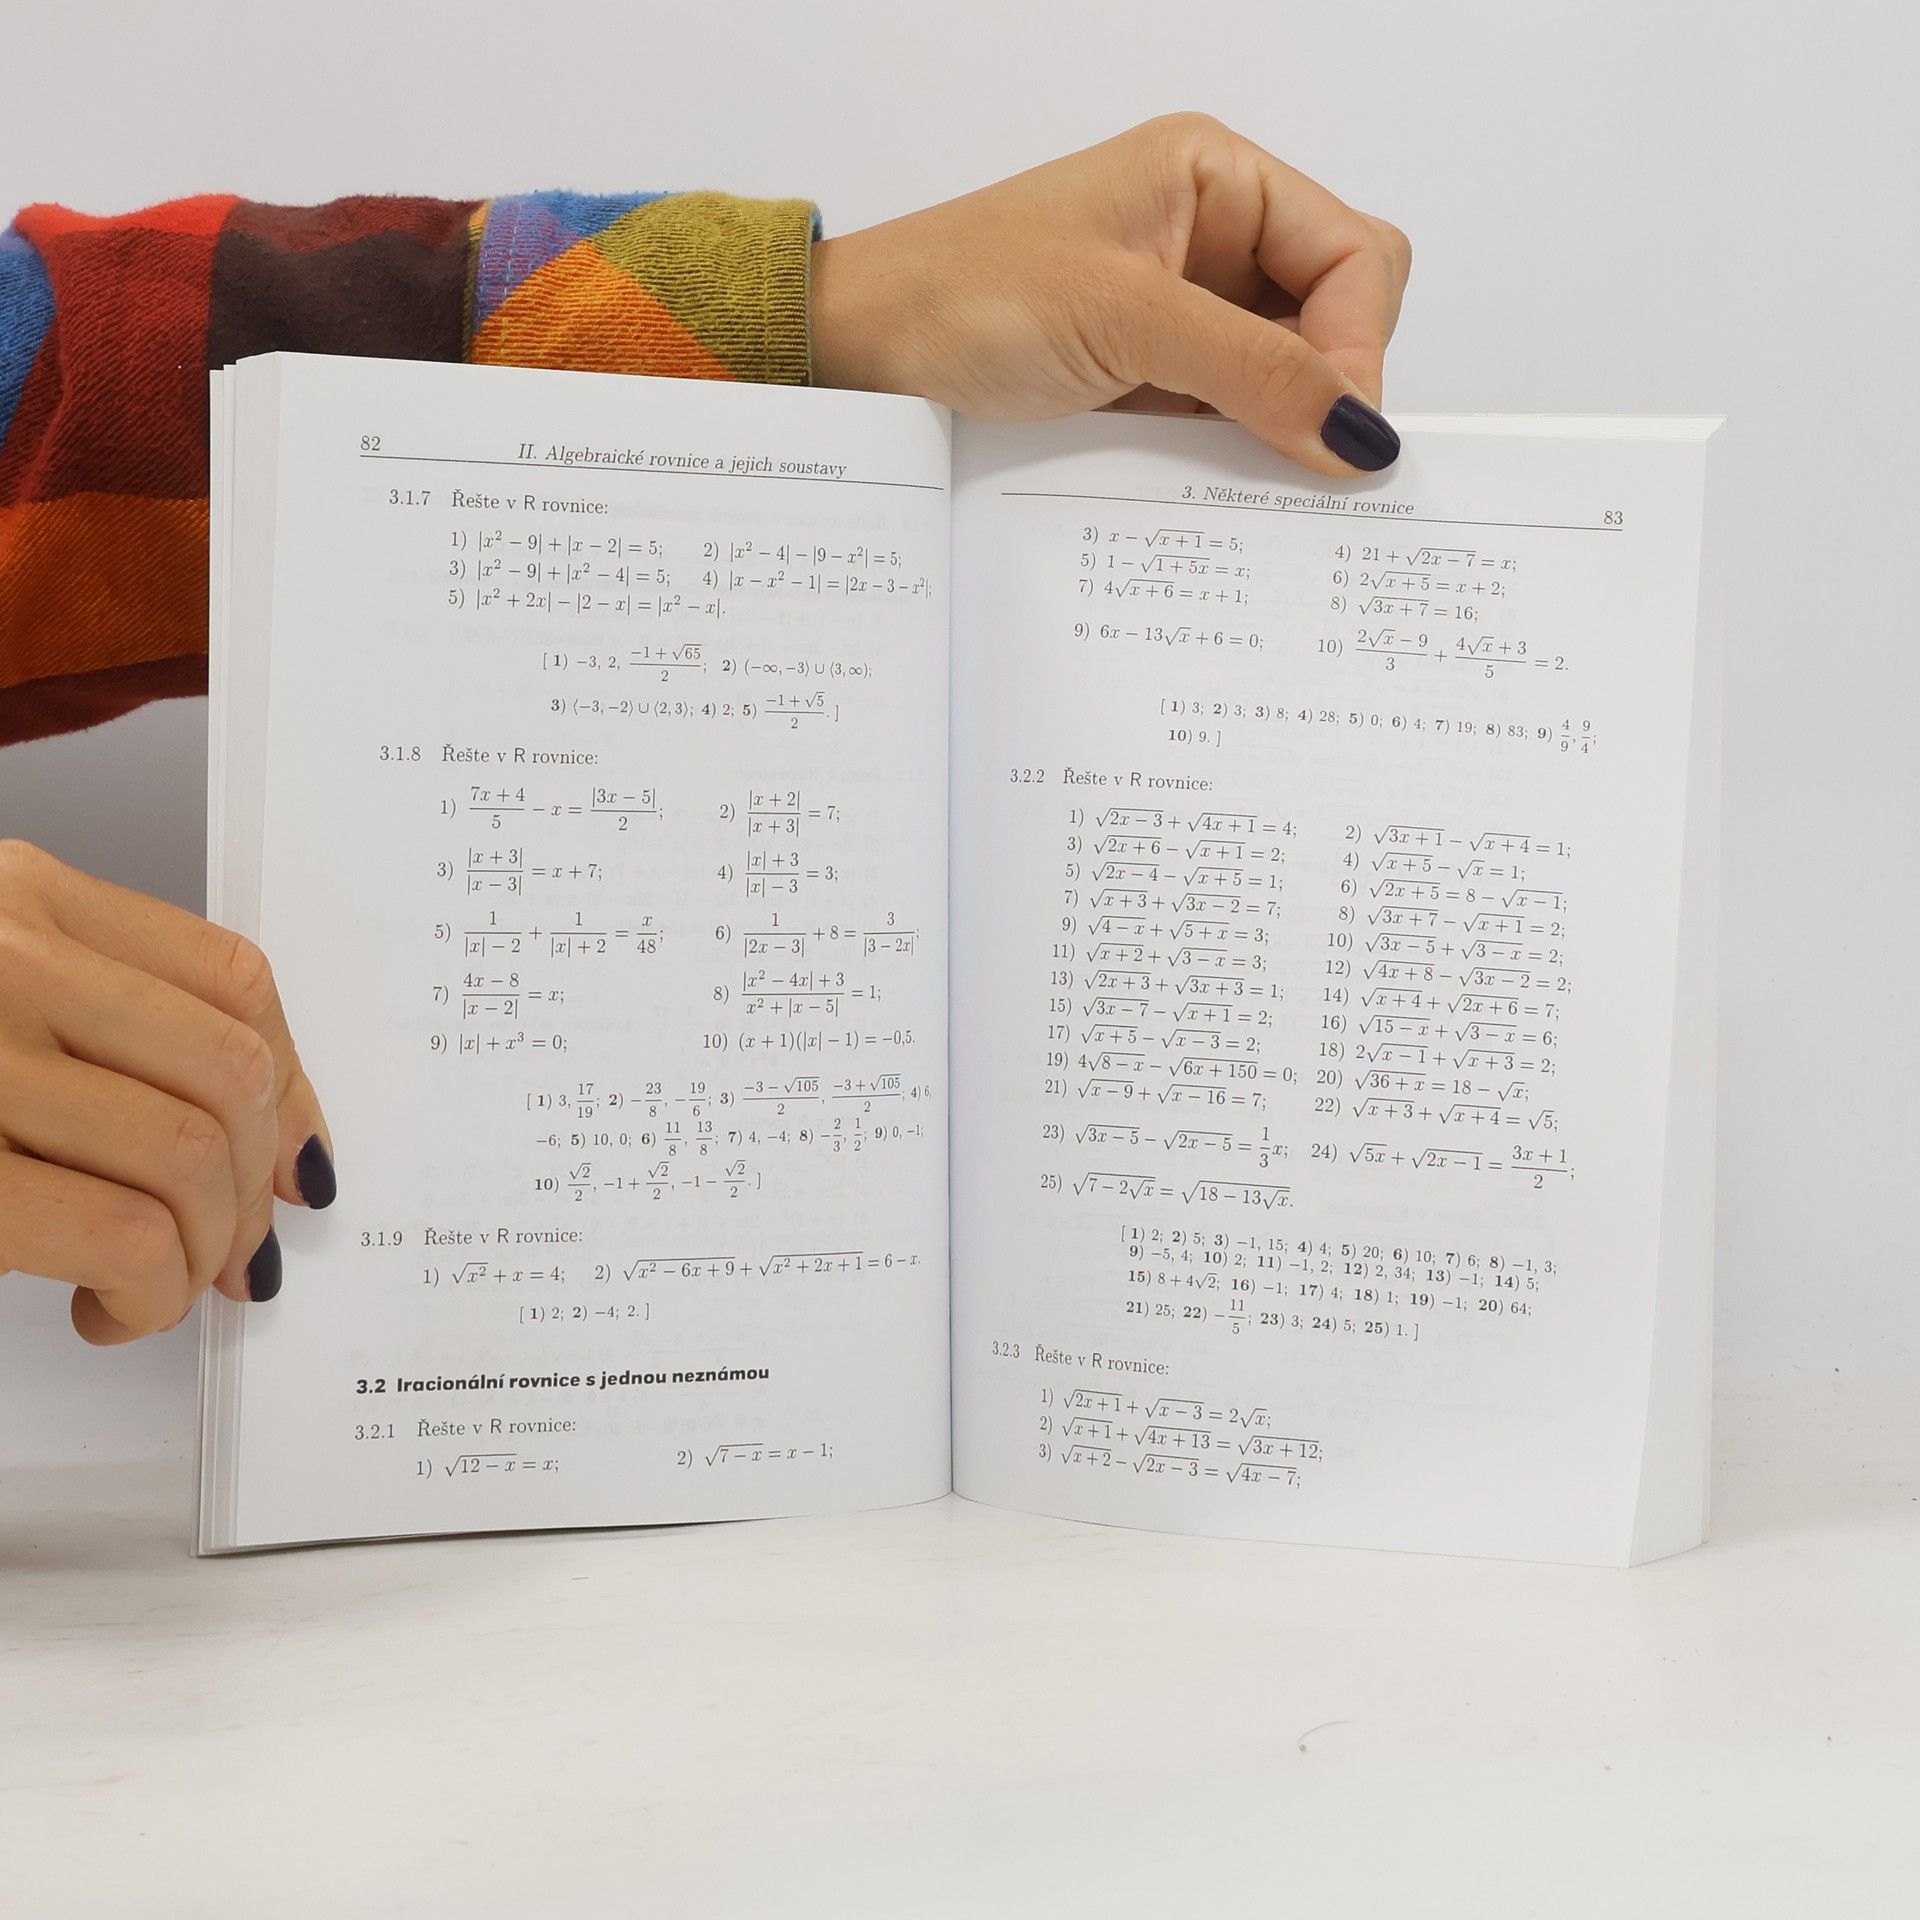 82 II. Algebraické rovnice a jejich soustavy
3.1.7 Řešte v R rovnice:
1) |x² − 9| + |x − 2| = 5; 2) |x² − 4| − |9 − x²| = 5;
3) |x² − 9| + |x² − 4| = 5; 4) |x − x² − 1| = |2x − 3 − x²|;
5) |x² + 2x| − |2 − x| = |x² − x|.
[ 1) −3, 2, (−1 + √65)/2; 2) (−∞, −3⟩ ∪ ⟨3, ∞);
3) ⟨−3, −2⟩ ∪ ⟨2, 3⟩; 4) 2; 5) (−1 + √5)/2. ]
3.1.8 Řešte v R rovnice:
1) (7x + 4)/5 − x = |3x − 5|/2; 2) |x + 2|/|x + 3| = 7;
3) |x + 3|/|x − 3| = x + 7; 4) (|x| + 3)/(|x| − 3) = 3;
5) 1/(|x| − 2) + 1/(|x| + 2) = x/48; 6) 1/|2x − 3| + 8 = 3/|3 − 2x|;
7) (4x − 8)/|x − 2| = x; 8) (|x² − 4x| + 3)/(x² + |x − 5|) = 1;
9) |x| + x³ = 0; 10) (x + 1)(|x| − 1) = −0,5.
[ 1) 3, 17/19; 2) −23/8, −19/6; 3) (−3 − √105)/2, (−3 + √105)/2; 4) 6,
−6; 5) 10, 0; 6) 11/8, 13/8; 7) 4, −4; 8) −2/3, 1/2; 9) 0, −1;
10) √2/2, −1 + √2/2, −1 − √2/2. ]
3.1.9 Řešte v R rovnice:
1) √(x²) + x = 4; 2) √(x² − 6x + 9) + √(x² + 2x + 1) = 6 − x.
[ 1) 2; 2) −4; 2. ]
3.2 Iracionální rovnice s jednou neznámou
3.2.1 Řešte v R rovnice:
1) √(12 − x) = x; 2) √(7 − x) = x − 1;
3. Některé speciální rovnice 83
3) x − √(x + 1) = 5; 4) 21 + √(2x − 7) = x;
5) 1 − √(1 + 5x) = x; 6) 2√(x + 5) = x + 2;
7) 4√(x + 6) = x + 1; 8) √(3x + 7) = 16;
9) 6x − 13√x + 6 = 0; 10) (2√x − 9)/3 + (4√x + 3)/5 = 2.
[ 1) 3; 2) 3; 3) 8; 4) 28; 5) 0; 6) 4; 7) 19; 8) 83; 9) 4/9, 9/4;
10) 9. ]
3.2.2 Řešte v R rovnice:
1) √(2x − 3) + √(4x + 1) = 4; 2) √(3x + 1) − √(x + 4) = 1;
3) √(2x + 6) − √(x + 1) = 2; 4) √(x + 5) − √x = 1;
5) √(2x − 4) − √(x + 5) = 1; 6) √(2x + 5) = 8 − √(x − 1);
7) √(x + 3) + √(3x − 2) = 7; 8) √(3x + 7) − √(x + 1) = 2;
9) √(4 − x) + √(5 + x) = 3; 10) √(3x − 5) + √(3 − x) = 2;
11) √(x + 2) + √(3 − x) = 3; 12) √(4x + 8) − √(3x − 2) = 2;
13) √(2x + 3) + √(3x + 3) = 1; 14) √(x + 4) + √(2x + 6) = 7;
15) √(3x − 7) − √(x + 1) = 2; 16) √(15 − x) + √(3 − x) = 6;
17) √(x + 5) − √(x − 3) = 2; 18) 2√(x − 1) + √(x + 3) = 2;
19) 4√(8 − x) − √(6x + 150) = 0; 20) √(36 + x) = 18 − √x;
21) √(x − 9) + √(x − 16) = 7; 22) √(x + 3) + √(x + 4) = √5;
23) √(3x − 5) − √(2x − 5) = 1/3 x; 24) √(5x) + √(2x − 1) = (3x + 1)/2;
25) √(7 − 2√x) = √(18 − 13√x).
[ 1) 2; 2) 5; 3) −1, 15; 4) 4; 5) 20; 6) 10; 7) 6; 8) −1, 3;
9) −5, 4; 10) 2; 11) −1, 2; 12) 2, 34; 13) −1; 14) 5;
15) 8 + 4√2; 16) −1; 17) 4; 18) 1; 19) −1; 20) 64;
21) 25; 22) −11/5; 23) 3; 24) 5; 25) 1. ]
3.2.3 Řešte v R rovnice:
1) √(2x + 1) + √(x − 3) = 2√x;
2) √(x + 1) + √(4x + 13) = √(3x + 12);
3) √(x + 2) − √(2x − 3) = √(4x − 7);